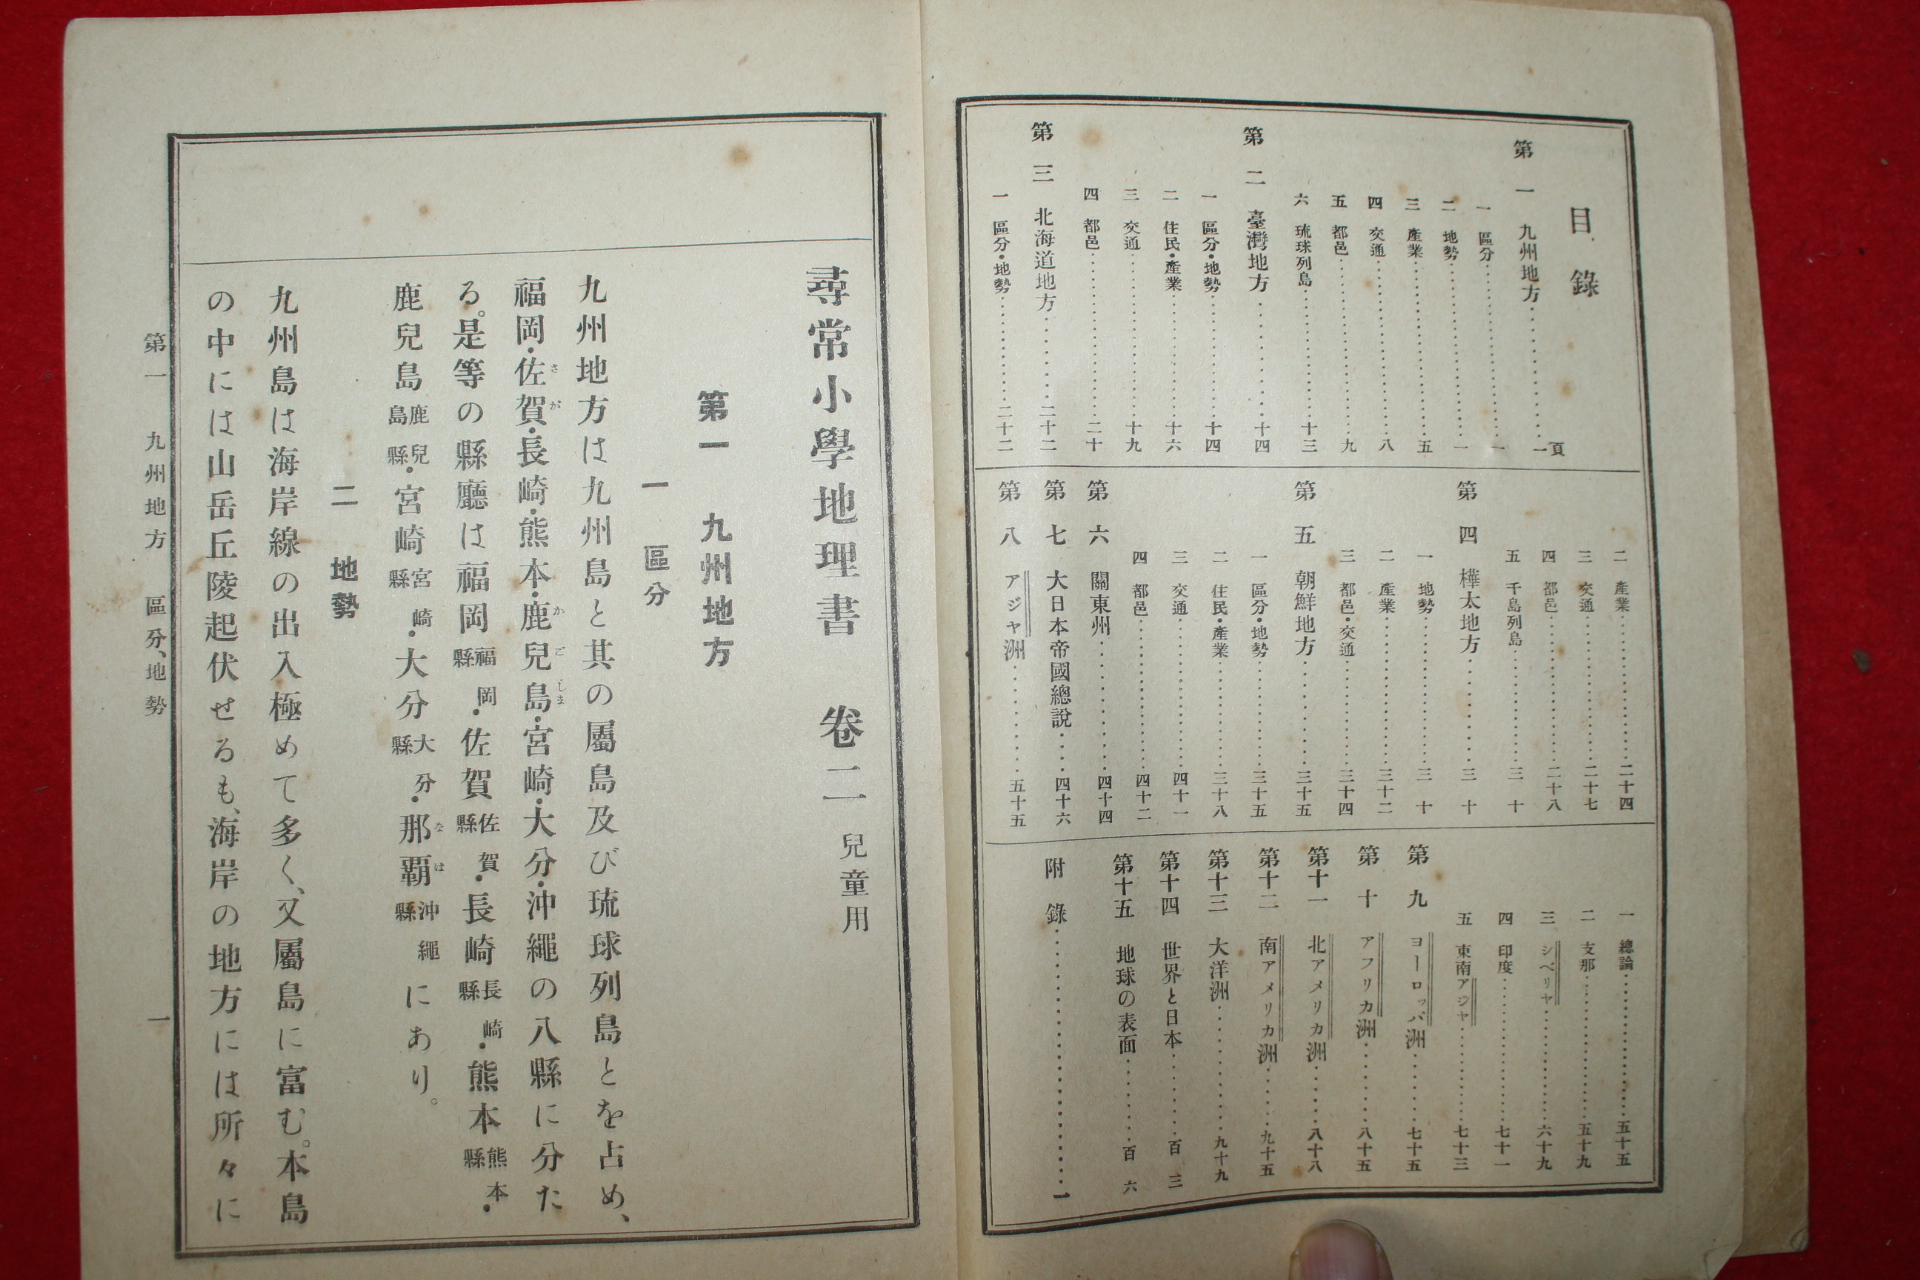 目錄
頁
第一 九州地方………一
一 區分………一
二 地勢………一
三 產業………五
四 交通………八
五 都邑………九
六 琉球列島………十三
第二 臺灣地方………十四
一 區分・地勢………十四
二 住民・產業………十六
三 交通………十九
四 都邑………二十
第三 北海道地方………二十二
一 區分・地勢………二十二
二 產業………二十四
三 交通………二十七
四 都邑………二十八
五 千島列島………三十
第四 樺太地方………三十
一 地勢………三十
二 產業………三十二
三 都邑・交通………三十四
第五 朝鮮地方………三十五
一 區分・地勢………三十五
二 住民・產業………三十八
三 交通………四十一
四 都邑………四十二
第六 關東州………四十四
第七 大日本帝國總說………四十六
第八 アジヤ洲………五十五
一 總論………五十五
二 支那………五十九
三 シベリヤ………六十九
四 印度………七十一
五 東南アジヤ………七十三
第九 ヨーロッパ洲………七十五
第十 アフリカ洲………八十五
第十一 北アメリカ洲………八十八
第十二 南アメリカ洲………九十五
第十三 大洋洲………九十九
第十四 世界と日本………百三
第十五 地球の表面………百六
附錄………一
尋常小學地理書 卷二 兒童用
第一 九州地方
一 區分
九州地方は九州島と其の屬島及び琉球列島とを占め、
福岡・佐賀・長崎・熊本・鹿兒島・宮崎・大分・沖繩の八縣に分た
る。是等の縣廳は福岡福岡縣・佐賀佐賀縣・長崎長崎縣・熊本熊本縣・
鹿兒島鹿兒島縣・宮崎宮崎縣・大分大分縣・那覇沖繩縣にあり。
二 地勢
九州島は海岸線の出入極めて多く、又屬島に富む。本島
の中には山岳丘陵起伏せるも、海岸の地方には所々に
第一 九州地方 區分、地勢 一